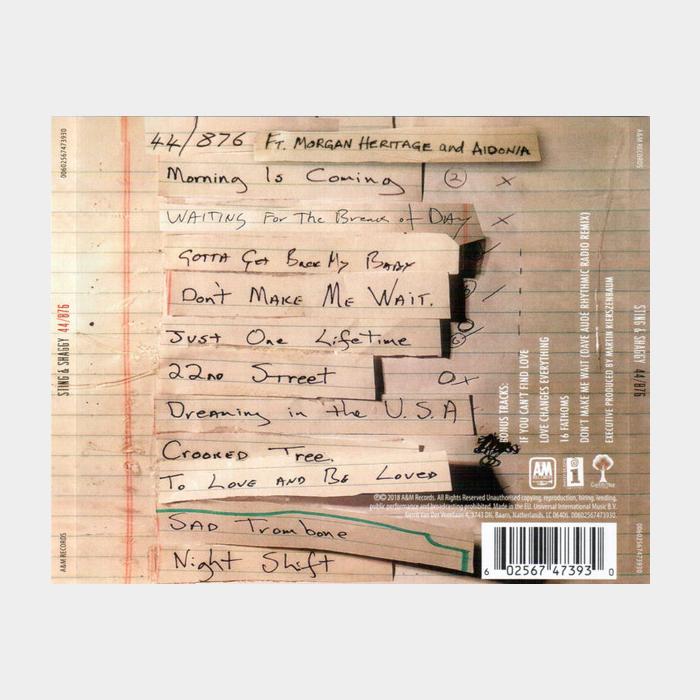 44/876 FT. MORGAN HERITAGE and AIDONIA
Morning Is Coming 2 x
WAITING For The Break of DAY x
GOTTA Get Back My BABY
DON'T MAKE ME WAIT.
Just One Lifetime
22nd Street
Dreaming in the U.S.A
CROOKED Tree.
To Love AND Be Loved
SAD Trombone
Night Shift
00602567473930
STING & SHAGGY 44/876
A&M RECORDS
BONUS TRACKS:
IF YOU CAN'T FIND LOVE
LOVE CHANGES EVERYTHING
16 FATHOMS
DON'T MAKE ME WAIT (DAVE AUDE RHYTHMIC RADIO REMIX)
EXECUTIVE PRODUCED BY MARTIN KIERSZENBAUM
A&M RECORDS
STING & SHAGGY 44/876
00602567473930
A&M
RECORDS
i
Cherrytree
℗© 2018 A&M Records. All Rights Reserved Unauthorised copying, reproduction, hiring, lending,
public performance and broadcasting prohibited. Made in the EU. Universal International Music B.V.
Gerrit Van Der Veenlaan 4, 3743 DN, Baarn, Netherlands, LC 06406. 00602567473930
6 02567 47393 0